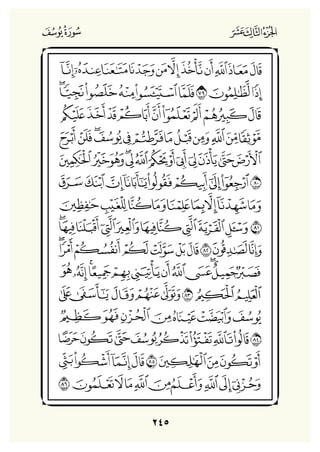 الجزء الثالث عشر
سورة يوسف
قال معاذ الله أن نأخذ إلا من وجدنا متاعنا عنده إنا
إذا لظالمون ٧٩ فلما استيئسوا منه خلصوا نجيا
قال كبيرهم ألم تعلموا أن أباكم قد أخذ عليكم
موثقا من الله ومن قبل ما فرطتم في يوسف فلن أبرح
الأرض حتى يأذن لي أبي أو يحكم الله لي وهو خير الحاكمين
٨٠ ارجعوا إلى أبيكم فقولوا يا أبانا إن ابنك سرق
وما شهدنا إلا بما علمنا وما كنا للغيب حافظين
٨١ وسئل القرية التي كنا فيها والعير التي أقبلنا فيها
وإنا لصادقون ٨٢ قال بل سولت لكم أنفسكم أمرا
فصبر جميل عسى الله أن يأتيني بهم جميعا إنه هو
العليم الحكيم ٨٣ وتولى عنهم وقال يا أسفى على
يوسف وابيضت عيناه من الحزن فهو كظيم
٨٤ قالوا تالله تفتؤا تذكر يوسف حتى تكون حرضا
أو تكون من الهالكين ٨٥ قال إنما أشكوا بثي
وحزني إلى الله وأعلم من الله ما لا تعلمون ٨٦
٢٤٥